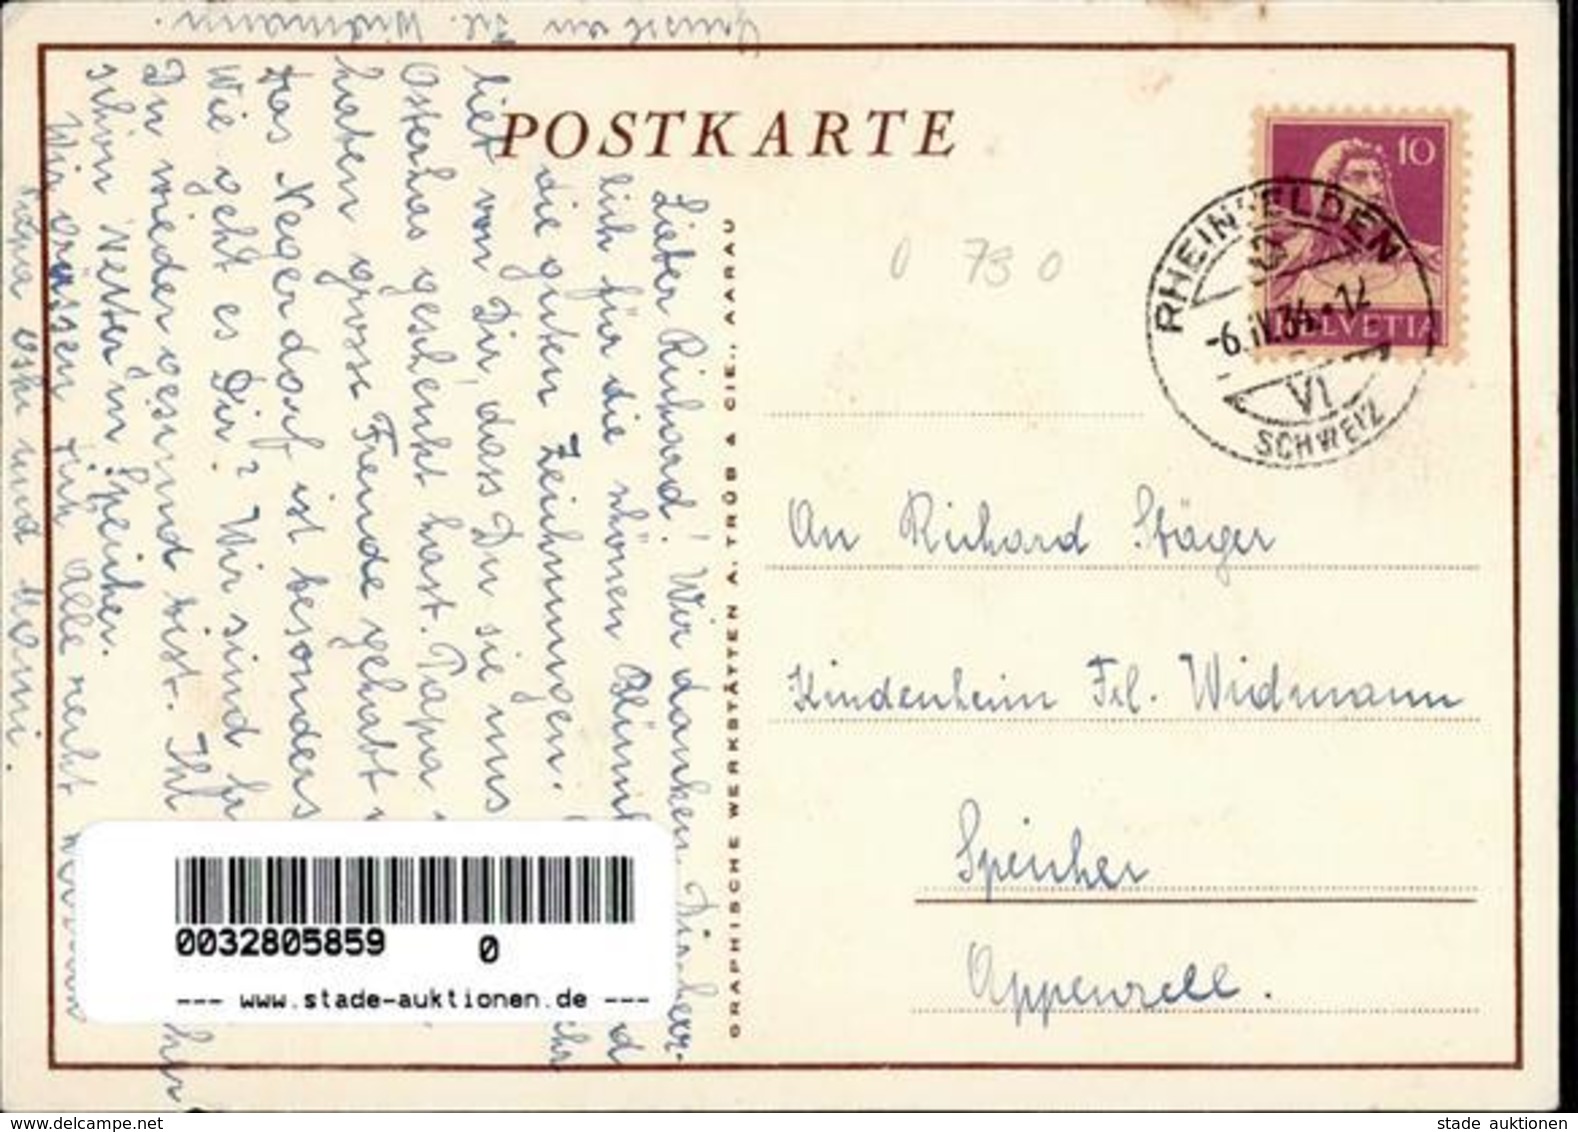 POSTKARTE
10
HELVETIA
RHEINFELDEN
-6.IV.34.-12
VI
SCHWEIZ
0 730
GRAPHISCHE WERKSTÄTTEN A. TRÜB & CIE., AARAU
An Richard Stäger
Kinderheim Frl. Widmann
Speicher
Appenzell.
Lieber Richard! Wir danken Dir herz-
lich für die schönen Blümli
die guten Zeichnungen.
lieb von Dir, dass Du sie uns
Osterhas geschenkt hast. Papa
haben grosse Freude gehabt
Das Negerdorf ist besonders
Wie geht es Dir? Wir sind
Du wieder gesund bist. Ihr
schöni Nester in Speicher.
Wir grüssen Dich alle recht
Papa und Mami.
Gruss an Frl. Widmann.
0032805859 0
--- www.stade-auktionen.de ---
www.delcampe.net
stade auktionen